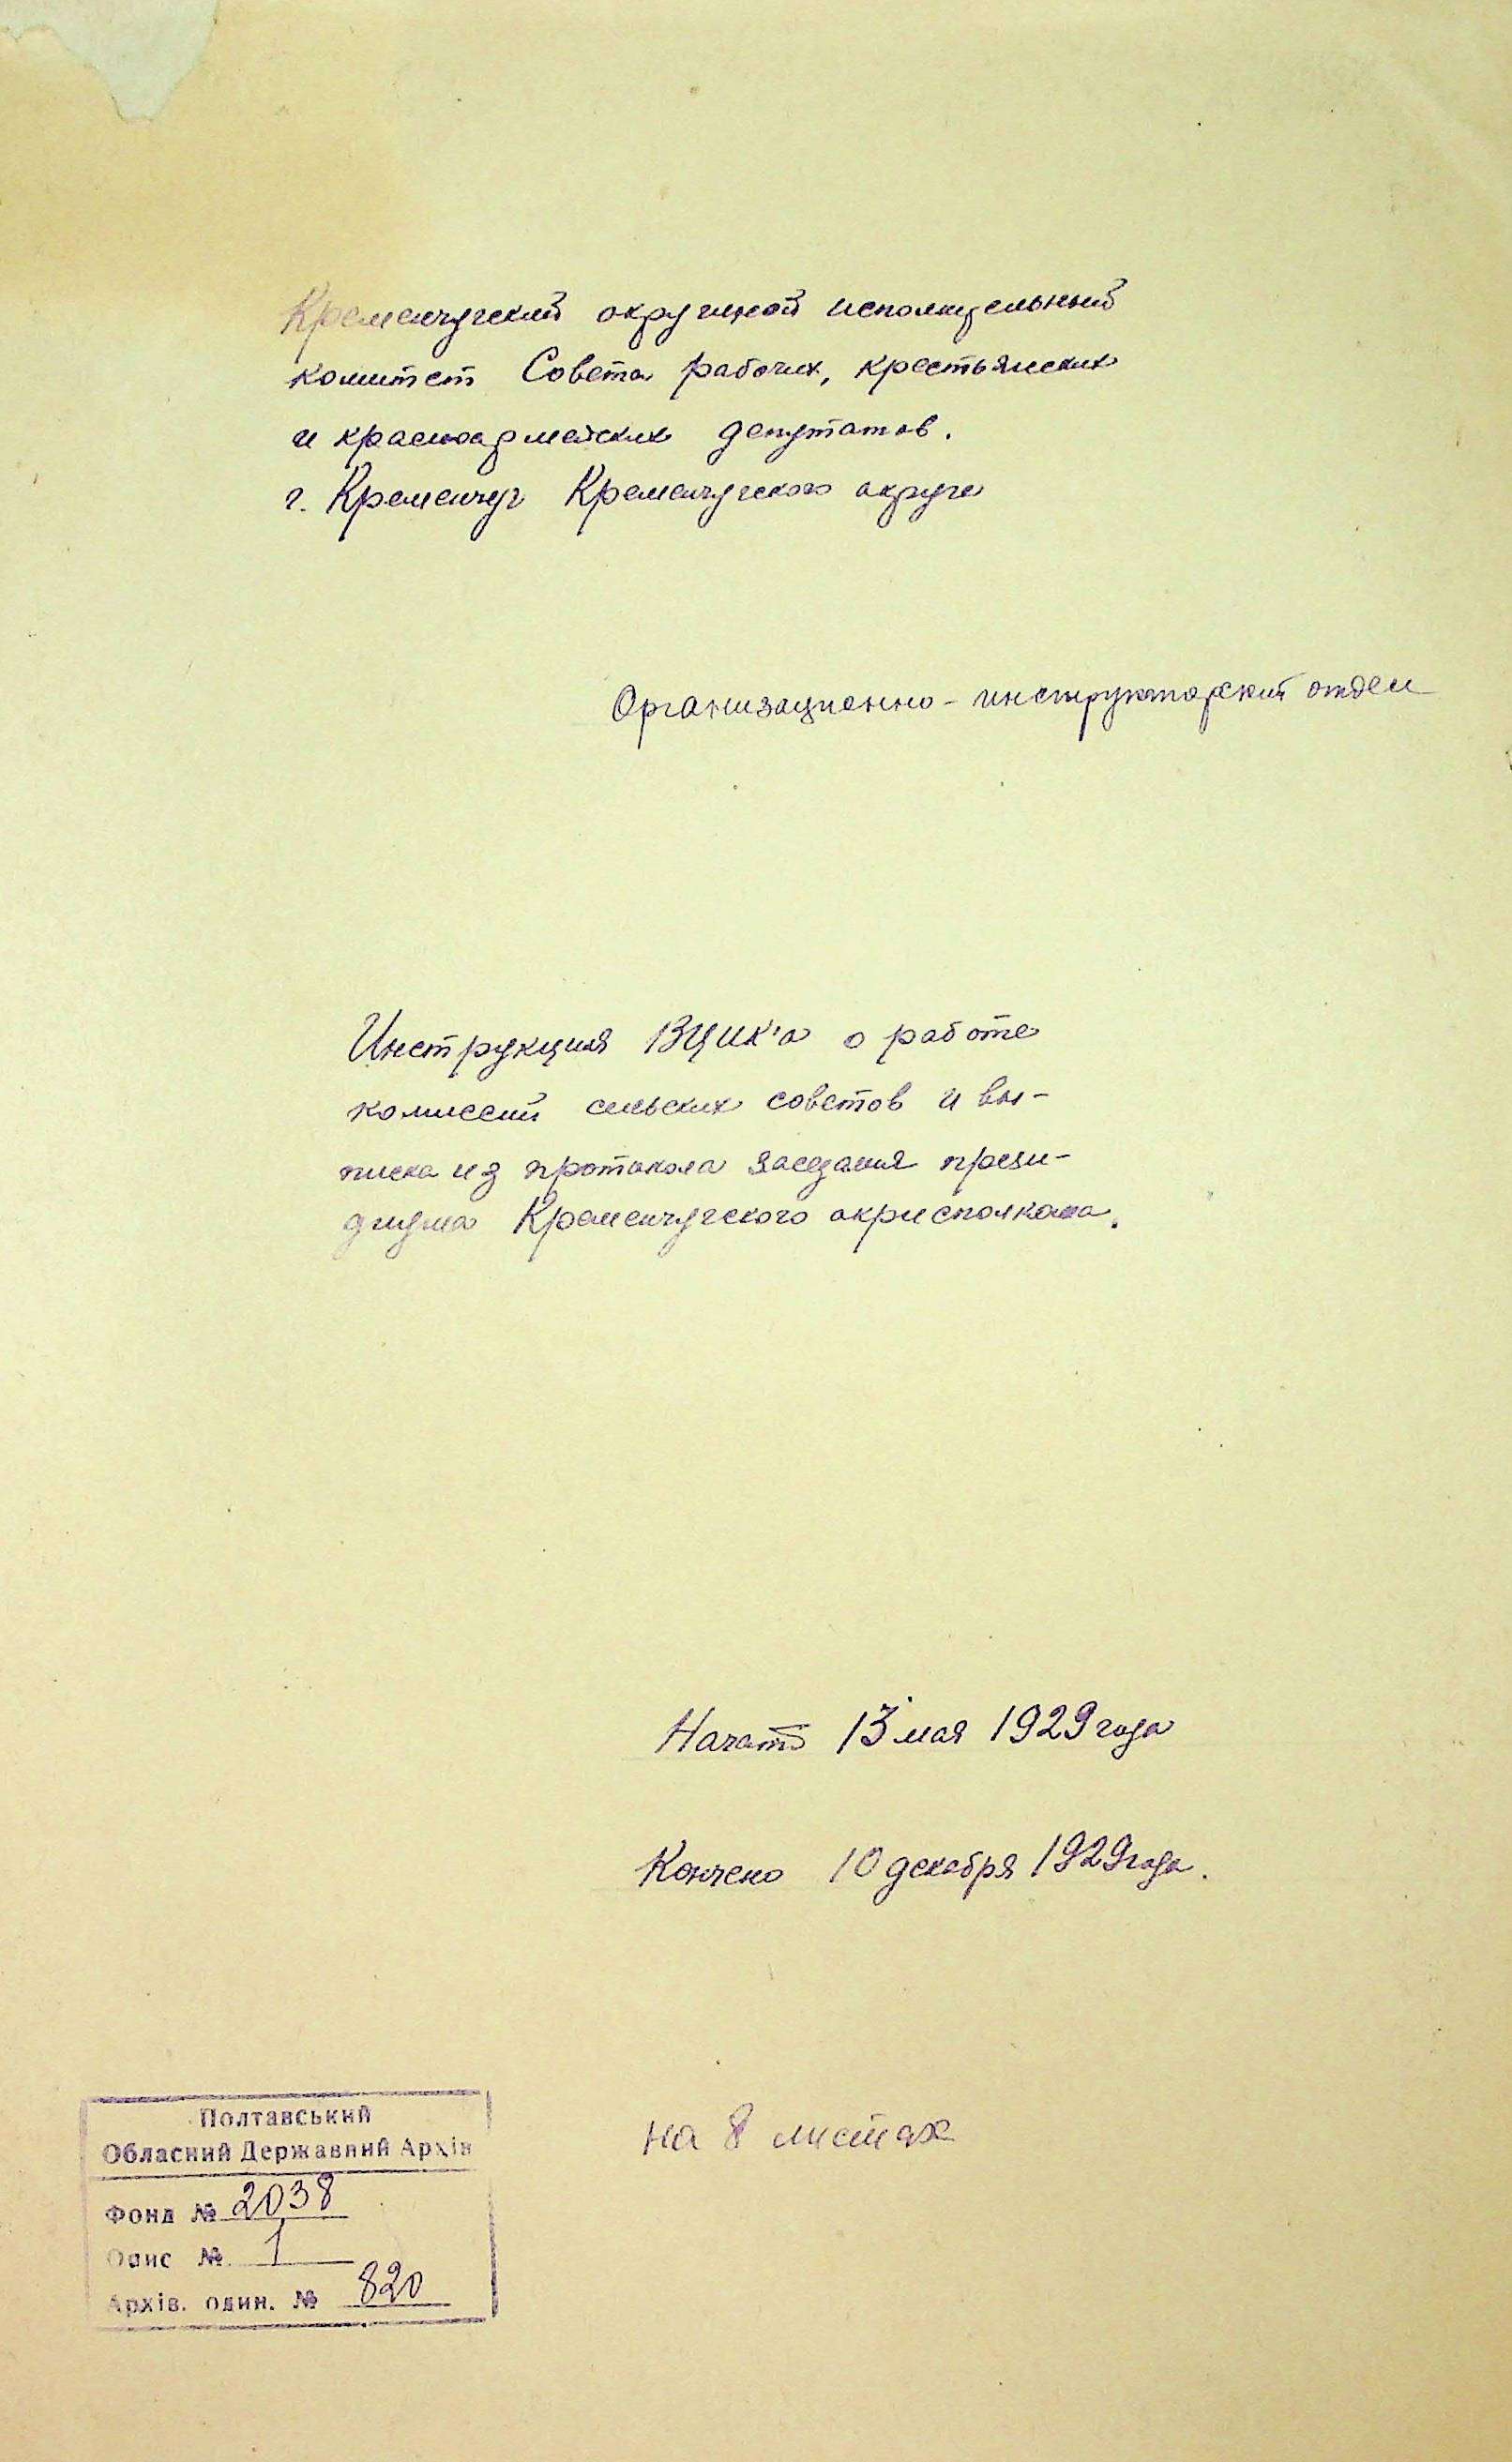 Кременчугский окружной исполнительный
комитет Совета рабочих, крестьянских
и красноармейских депутатов.
г. Кременчуг Кременчугского округа
Организационно - инструкторский отдел
Инструкция ВЦИК'а о работе
комиссий сельских советов и вы-
писка из протокола заседания прези-
диума Кременчугского окрисполкома.
Начато 13 мая 1929 года
Кончено 10 декабря 1929 года.
на 8 листах
Полтавський
Обласний Державний Архів
Фонд № 2038
Опис № 1
Архів. один. № 820